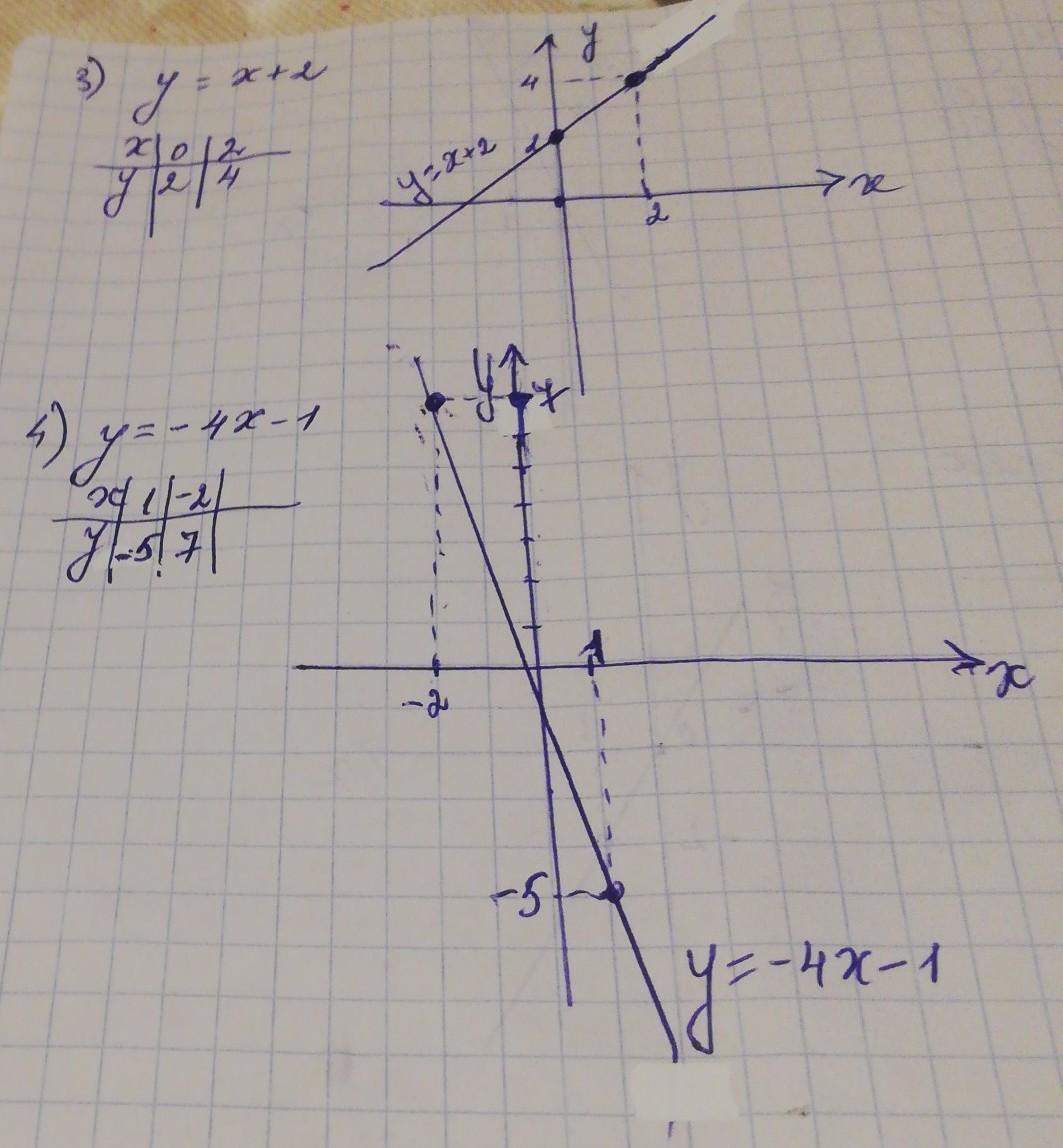 3) y = x+2
x 0 2
y 2 4
y
4
2
y=x+2
x
2
4) y = -4x-1
x 1 -2
y -5 7
y
7
1
x
-2
-5
y = -4x-1